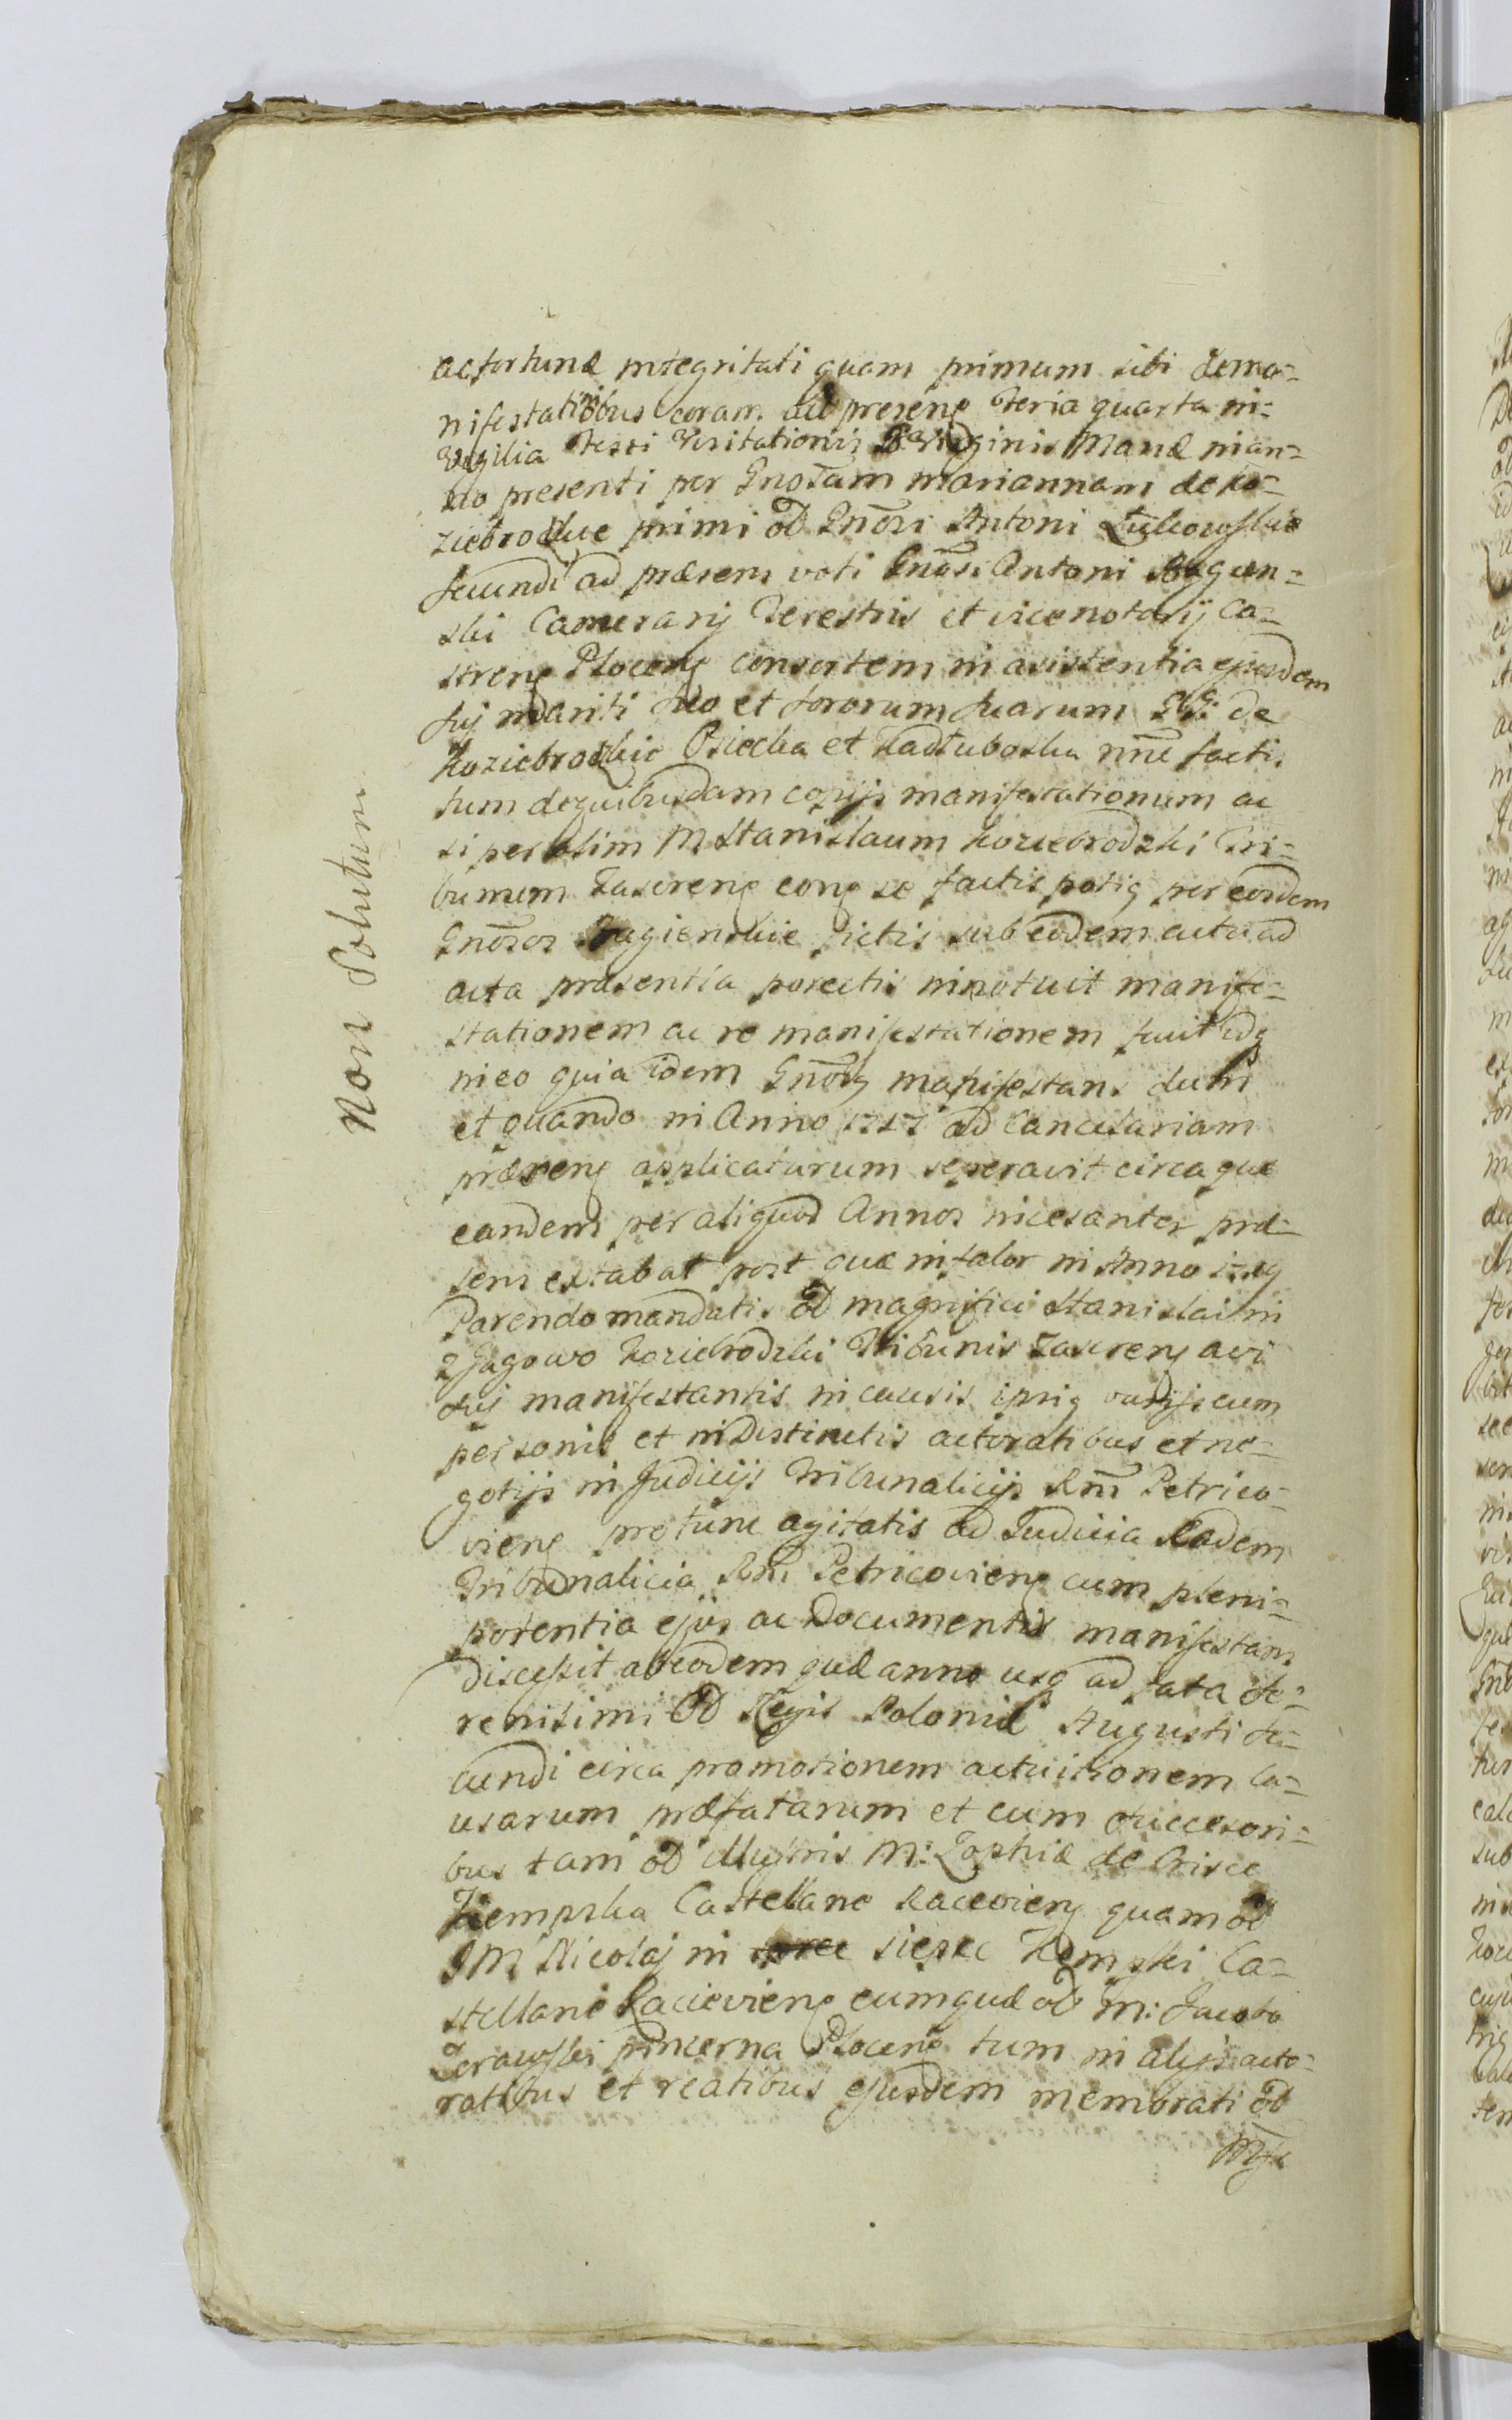 ac fortunæ integritati quam primum sibi de ma-
nifestationibus coram act presenē Feria quarta in
Vigilia Festi Visitationis B Virginis Mariæ in an-
no presenti per Gnosam Mariannam de Ko-
ziebrodzkie primi ōd Gnōsi Antoni Zulkowskie
secundi ad præsens voti Gnōsi Antoni
ski Camerarij Terestris et vicenotarij Ca-
strenę Plocenę consortem in asistentia ejusdem
sūj mariti suo et sororum suarum GG: de
Koziebrodzkie Osiecka et Kadłuboska nīne facti.
tum de quibusdam copijs manifestationum ac
si per olim M Stanislaum Koziebrodzki Tri-
bunum Zascrenę conę se factis potię per eosdem
Gnōsos fictis sub eodem actu ad
acta præsentia porectis innotuit manife-
stationem ac re manifestationem fecit idq
in eo quia idem Gnōsę manifestans dum
et quando in Anno 1717 ad Cancelariam
præsenę applicaturum se peravit circa quæ
eandem per aliquod Annos incesanter præ-
sens extabat post quæ in talor in Anno
Parendo mandatis ōd magnifici Stanislai in
Jagowo Koziebrodzki Tribunis Zascrenę avi
sūi manifestantis in causis ipsię varijs cum
personis et in distinctis actoratibus et ne-
gotijs in Judicijs Tribunalicijs Rnī Petrico-
vienę pro tunc agitatis ad Judicia Eadem
Tribunalicia Rnī Petricovienę cum pleni-
potentia ejus ac Documentis manifestans
discessit ab eodem quæ anno usq ad fata Se-
renisimi ōd Regis Poloniæ Augusti Se-
cundi circa promotionem actuitionem Ca-
usarum præfatarum et cum Succesori-
bus tam ōd illustris M: Zophiæ de Crisce
Kempska Castellane Racievienę quam ōd
J M Nicolaj in sieprc Kempski Ca-
stellani Racievienę cumquæ ōd M: Jacobo
Zorawski pincerna Plocenę tum in alijs acto-
ratibus et reatibus ejusdem memorati ōd
Non Solutum